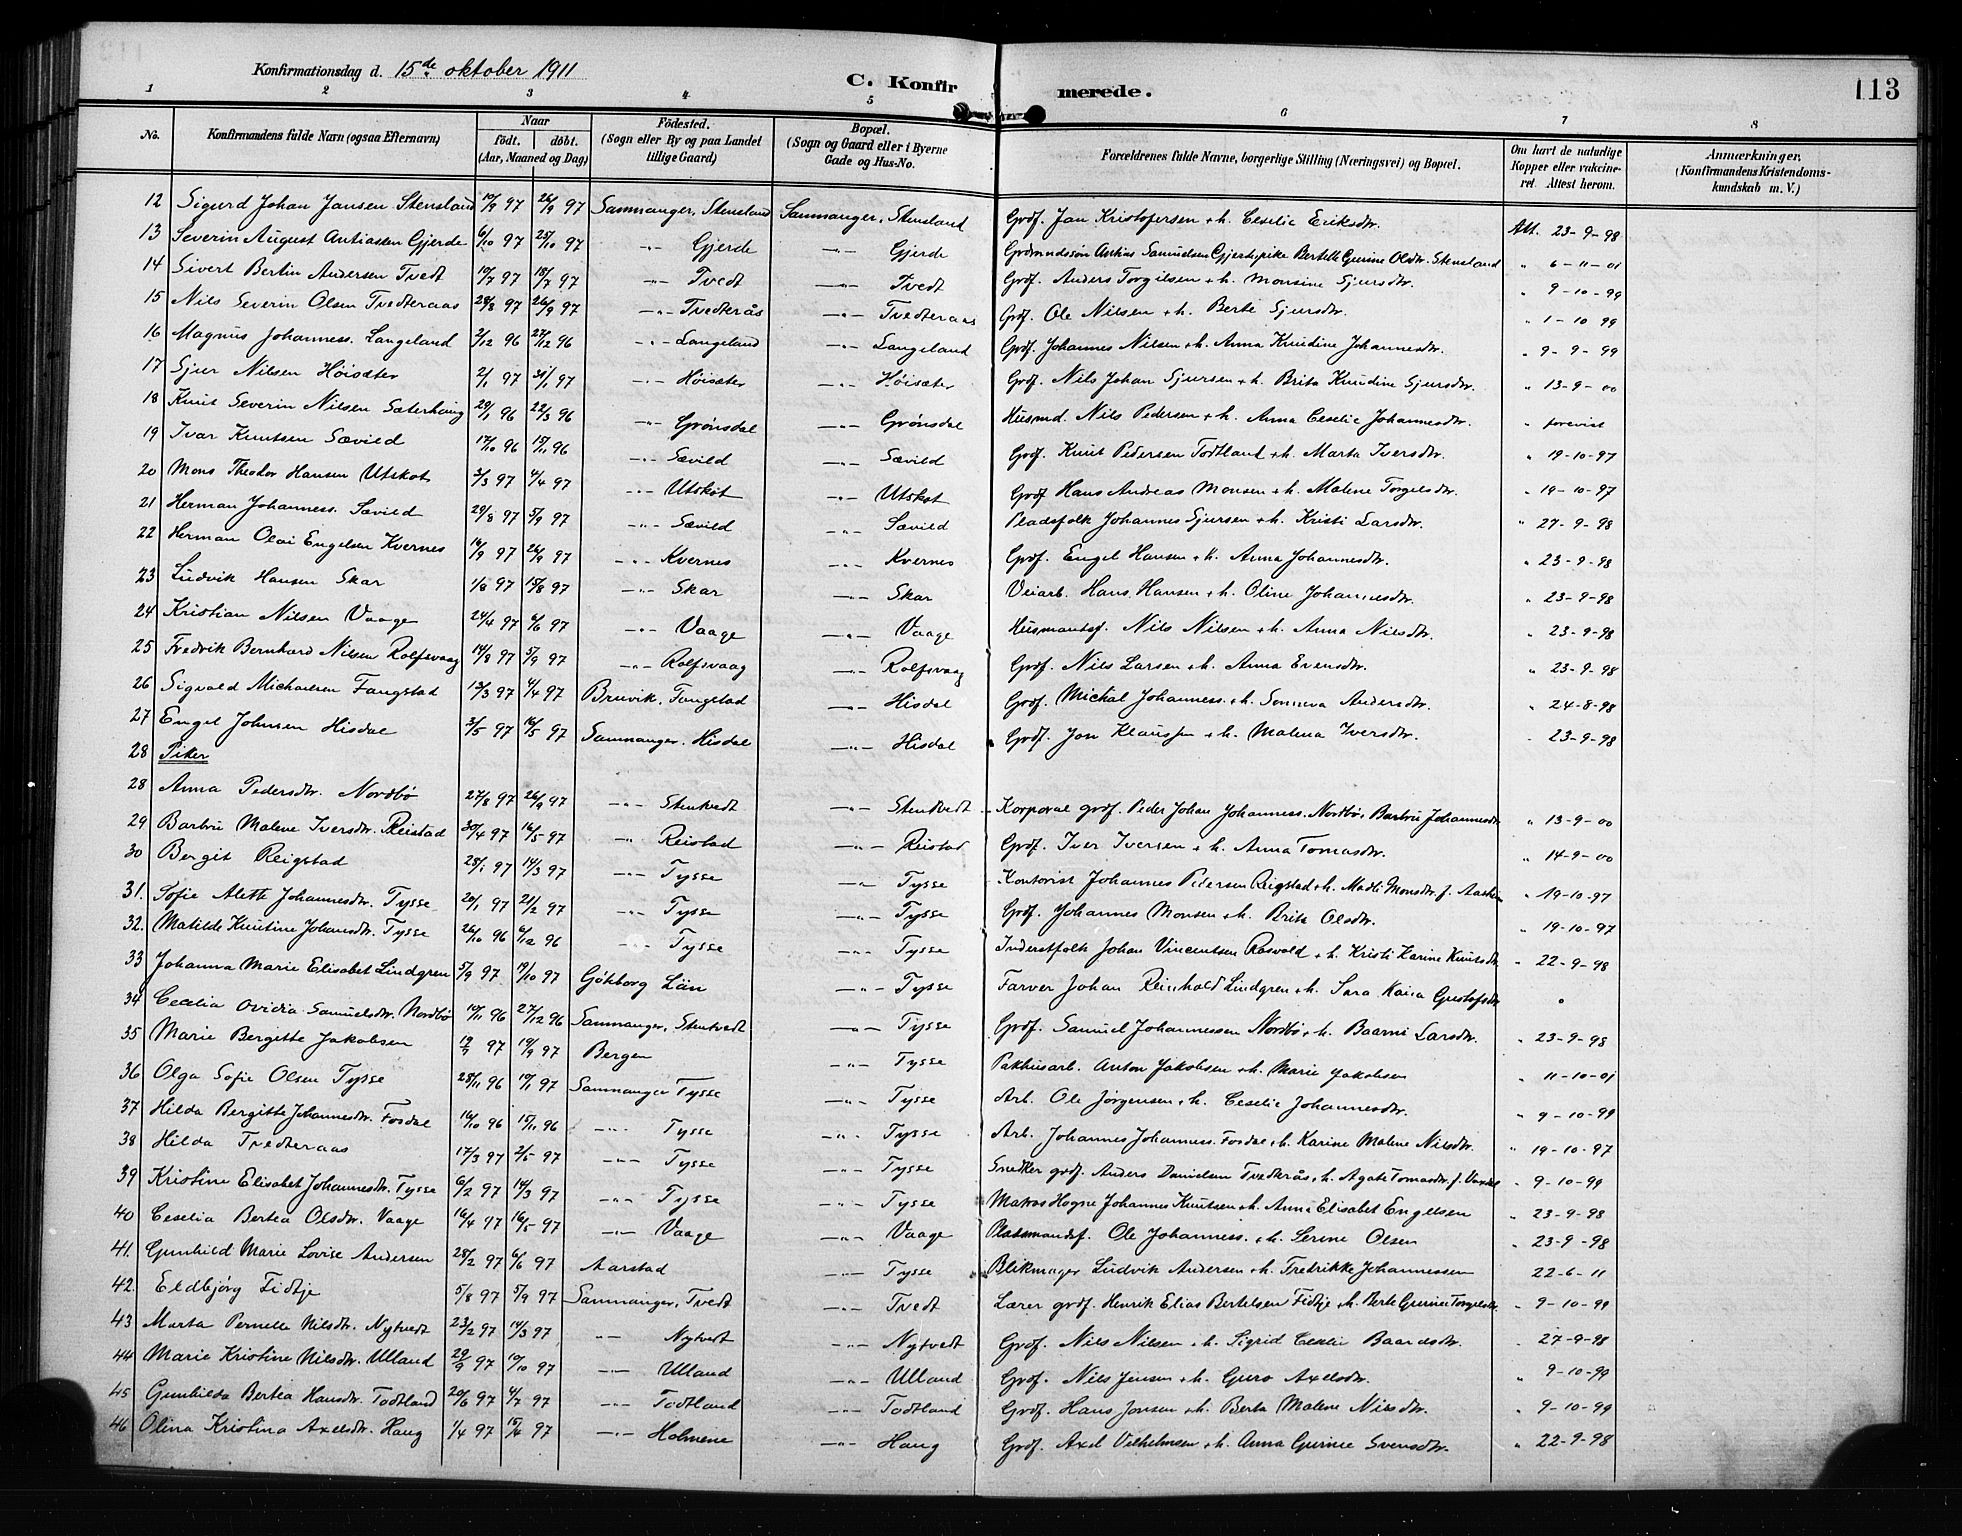 Konfirmationsdag d. 15de oktober 1911
C. Konfirmerede.
113
1 2 3 4 5 6 7 8
No. Konfirmandens fulde Navn (ogsaa Efternavn) Naar født. døbt. (Aar, Maaned og Dag) Fødested. (Sogn eller By og paa Landet tillige Gaard) Bopæl. (Sogn og Gaard eller i Byerne Gade og Hus-No. Forældrenes fulde Navne, borgerlige Stilling (Næringsvei) og Bopæl. Om havt de naturlige Kopper eller vakcineret. Attest herom. Anmærkninger. (Konfirmandens Kristendomskundskab m. V.)
12 Sigurd Johan Jansen Stensland 10/9 97 26/9 97 Samnanger, Stensland Samnanger, Stensland Grdf. Jan Kristofersen + h. Ceselie Eriksdtr. Att. 23-9-98
13 Severin August Antiassen Gjerde 6/10 97 25/10 97 -"- Gjerde -"- Gjerde Grdmndssøn Antias Samuelsen Gjerde, pike Bertelle Gurine Olsdtr. Stensland " 6-11-01
14 Sivert Bertin Andersen Tvedt 10/7 97 18/7 97 -"- Tvedt -"- Tvedt Grdf. Anders Torgilsen + h. Monsine Sjursdtr. " 9-10-99
15 Nils Severin Olsen Tvedteraas 28/8 97 26/9 97 -"- Tvedterås -"- Tvedteraas Grdf. Ole Nilsen + h. Berte Sjursdtr. " 1-10 99
16 Magnus Johanness. Langeland 2/12 96 27/12 96 -"- Langeland -"- Langeland Grdf. Johannes Nilsen + h. Anna Knudine Johannesdtr. " 9-9-99
17 Sjur Nilsen Høisæter 2/1 97 31/1 97 -"- Høisæter -"- Høisæter Grdf. Nils Johan Sjursen + h. Brita Knudine Sjursdtr. " 13-9-00
18 Knut Severin Nilsen Sæterhaug 29/1 96 22/3 96 -"- Grønsdal -"- Grønsdal Husmd. Nils Pedersen + h. Anna Ceselie Johannesdtr. " forevist
19 Ivar Knutsen Sævild 17/10 96 15/11 96 -"- Sævild -"- Sævild Grdf. Knut Pedersen Todtland + h. Marta Iversdtr. " 19-10-97
20 Mons Theodor Hansen Utskot 3/3 97 4/4 97 -"- Utskot -"- Utskot Grdf Hans Andreas Monsen + h. Malene Torgelsdtr. " 19-10-97
21 Herman Johanness. Sævild 29/8 97 5/9 97 -"- Sævild -"- Sævild Pladsfolk Johannes Sjursen + h. Kristi Larsdtr. " 27-9-98
22 Herman Olai Engelsen Kvernes 16/9 97 26/9 97 -"- Kvernes -"- Kvernes Grdf. Engel Hansen + h. Anna Johannesdtr. " 23-9-98
23 Ludvik Hansen Skar 1/8 97 15/8 97 -"- Skar -"- Skar Veiarb. Hans Hansen + h. Oline Johannesdtr. " 23-9-98
24 Kristian Nilsen Vaage 24/4 97 6/6 97 -"- Vaage -"- Vaage Husmantsf. Nils Nilsen + h. Anna Nilsdtr. " 23-9-98
25 Fredvik Bernhard Nilsen Rolfsvaag 14/8 97 5/9 97 -"- Rolfsvaag -"- Rolfsvaag Grdf. Nils Larsen + h. Anna Evensdtr. " 23-9-98
26 Sigvald Michaelsen Fangstad 13/3 97 4/4 97 Bruvik, Fangstad -"- Hisdal Grdf. Michal Johanness. + h. Sonneva Andersdtr. " 24-8-98
27 Engel Johnsen Hisdal 3/5 97 16/5 97 Samnanger, Hisdal -"- Hisdal Grdf. Jon Klaussen + h. Malena Iversdtr. " 23-9-98
28 Piker
28 Anna Pedersdtr. Nordbø 27/8 97 26/9 97 -"- Stentvedt -"- Stentvedt Korporal grdf. Peder Johan Johanness. Nordbø, Barbru Johannesdtr " 13-9-00
29 Barbru Malene Iversdtr. Reistad 30/4 97 16/5 97 -"- Reistad -"- Reistad Grdf. Iver Iversen + h. Anna Tomasdtr. " 14-9-00
30 Bergit Reigstad 28/1 97 14/3 97 -"- Tysse -"- Tysse Kontorist Johannes Pedersen Reigstad + h. Madli Monsdtr. f. " 19-10-97
31. Sofie Alette Johannesdtr. Tysse 20/1 97 21/2 97 -"- Tysse -"- Tysse Grdf. Johannes Monsen + h. Brita Olsdtr. " 19-10-97
32. Matilde Knutine Johansdtr. Tysse 26/10 96 6/12 96 -"- Tysse -"- Tysse Inderstfolk Johan Vincentsen Røsvold + h. Kristi Karine Knutsdtr " 22-9-98
33 Johanna Marie Elisabet Lindgren 5/9 97 19/10 97 Göteborg Län -"- Tysse Farver Johan Reinhold Lindgren + h. Sara Kaisa Gustafsdtr "
34 Cecelia Ovidia Samuelsdtr. Nordbø 19/11 96 27/12 96 Samnanger, Stentvedt -"- Tysse Grdf. Samuel Johannessen Nordbø + h. Baarni Larsdtr. " 23-9-98
35 Marie Bergitte Jakobsen 19/7 97 19/9 97 Bergen -"- Tysse Pakhusarb. Anton Jakobsen + h. Marie Jakobsen " 11-10-01
36 Olga Sofie Olsen Tysse 28/11 96 10/1 97 Samnanger Tysse -"- Tysse Arb. Ole Jørgensen + h. Ceselie Johannesdtr. " 9-10-99
37 Hilda Bergitte Johannesdtr. Fosdal 16/10 96 15/11 96 -"- Tysse -"- Tysse Arb. Johannes Johanness. Fosdal + h. Karine Malene Nilsdtr. " 19-10-97
38 Hilda Tvedteraas 17/3 97 2/5 97 -"- Tysse -"- Tysse Snedker grdf. Anders Danielsen Tvedterås, h. Agate Tomasdtr. f. " 9-10-99
39 Kristine Elisabet Johannesdtr. Tysse 6/2 97 14/3 97 -"- Tysse -"- Tysse Matros Hogne Johannes Knutsen + h. Anna Elisabet Engelsen " 23-9-98
40 Ceselia Bertea Olsdtr. Vaage 16/4 97 16/5 97 -"- Vaage -"- Vaage Pladsmandsf. Ole Johanness. + h. Serine Olsen " 23-9-98
41. Gunhild Marie Lovise Andersen 28/2 97 6/6 97 Aarstad -"- Tysse Blikmager Ludvik Andersen + h. Fredrikke Johannessen 22-6-11
42. Eldbjørg Fidtje 5/8 97 5/9 97 Samnanger, Tvedt -"- Tvedt Lærer grdf. Henrik Elias Bertelsen Fidtje + h. Berte Gurine Torgelsdtr " 9-10-99
43 Marta Pernelle Nilsdtr. Nytvedt 23/2 97 14/3 97 -"- Nytvedt -"- Nytvedt Grdf. Nils Nilsen + h. Sigrid Ceselie Baardsdtr. " 27-9-98
44 Marie Kristine Nilsdtr. Ulland 29/9 97 10/10 97 -"- Ulland -"- Ulland Grdf. Nils Jensen + h. Guro Axelsdtr. " 9-10-99
45 Gunhilda Bertea Hansdtr. Todtland 20/6 97 4/7 97 -"- Todtland -"- Todtland Grdf. Hans Jonsen + h. Berta Malene Nilsdtr. " 9-10-99
46 Olina Kristina Axelsdtr. Haug 1/4 97 15/4 97 -"- Holmene -"- Haug Grdf. Axel Vilhelmsen + h. Anna Gurine Svensdtr. " 22-9-98